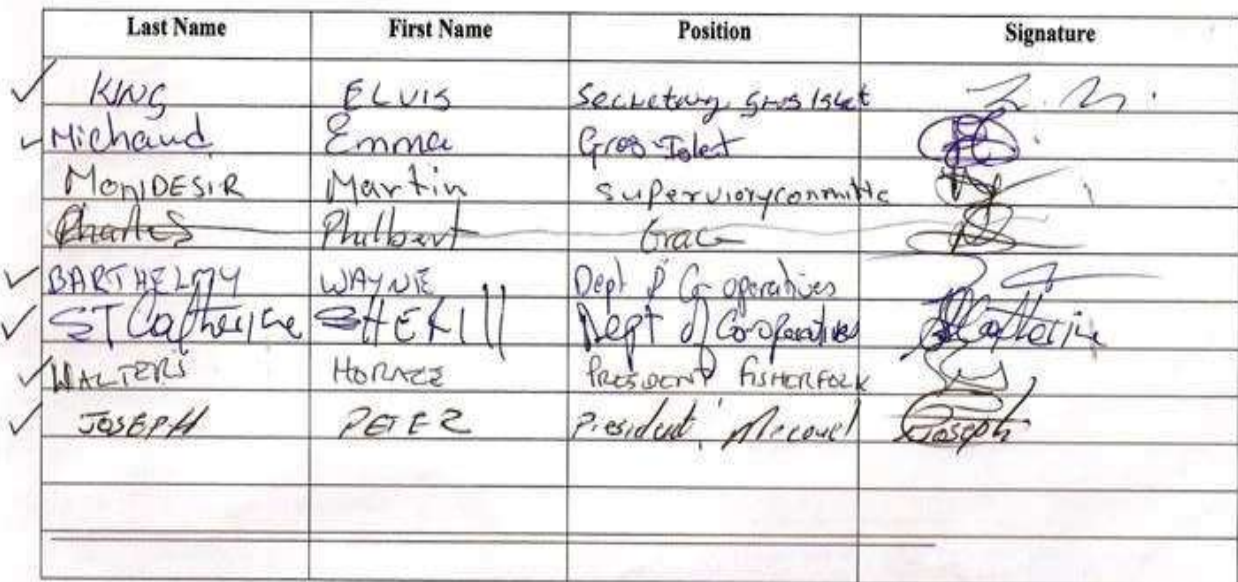 Last Name First Name Position Signature
KING ELVIS Secretary Gros Islet
Michaud Emma Gros-Islet
MONDESIR Martin superviorycommitte
Charles Philbert Grace
BARTHELMY WAYNE Dept of Co-operatives
ST Catherine SHERILL Dept of Co-operatives St Catherine
WALTERS HORACE PRESIDENT FISHERFOLK
JOSEPH PETER President, Joseph